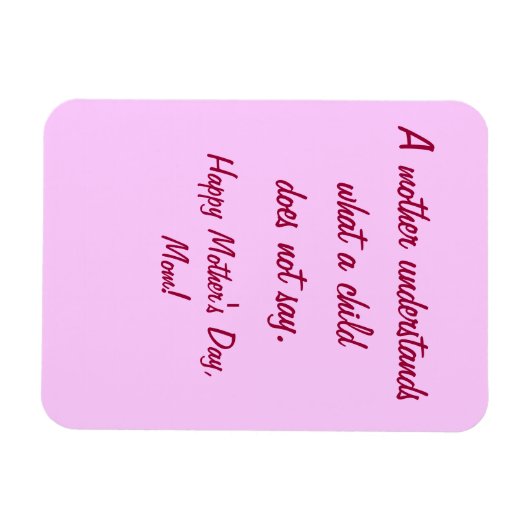 A mother understands
what a child
does not say.
Happy Mother's Day,
Mom!